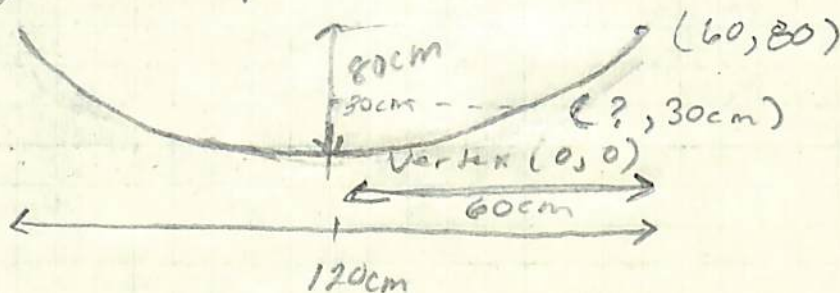 (60,80)
80cm
30cm
(?, 30cm)
Vertex (0,0)
60cm
120cm